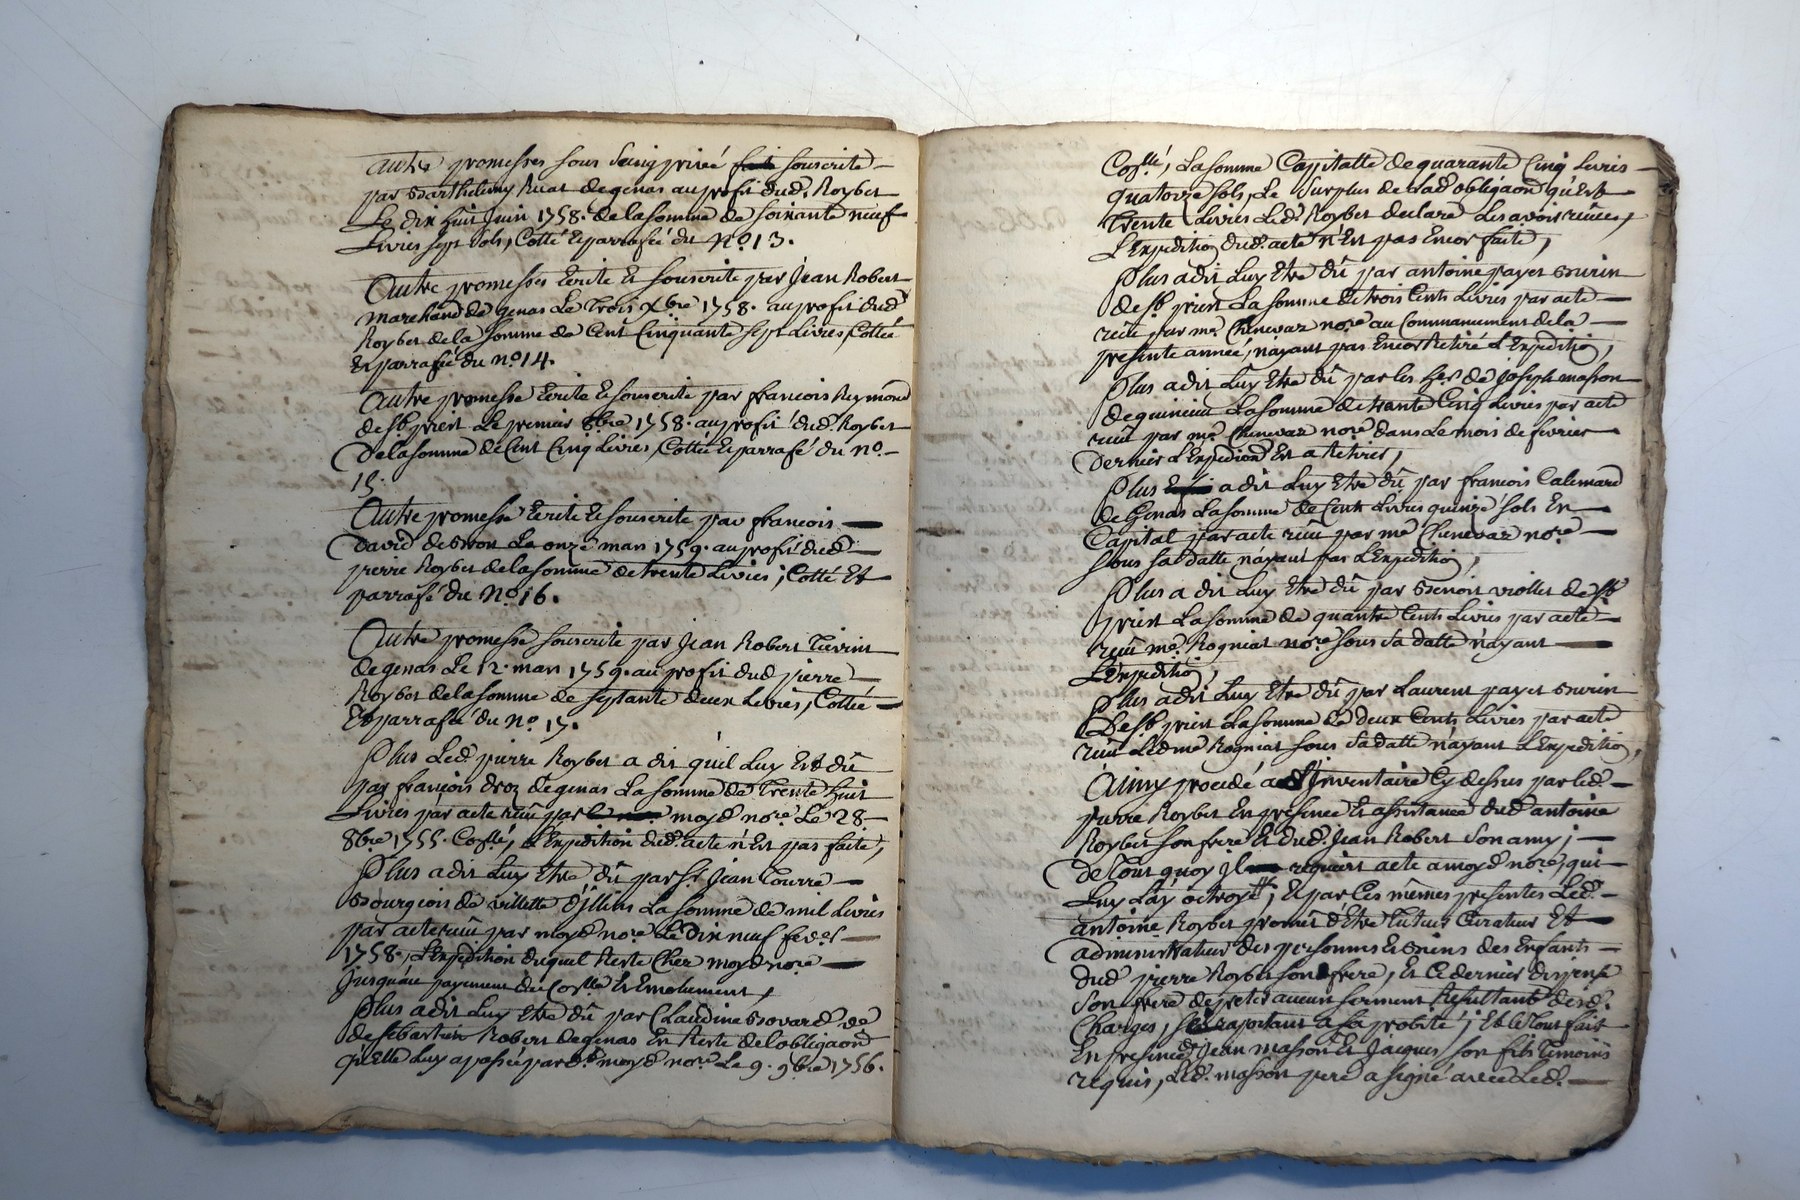 Autre promesses sous seing privé souscrite
par Barthelemy Ruat de genas au profit dud. Roybet
Le dix huit juin 1758. de la somme de soixante neuf
Livres sept sols, Cotté et parrafée du N.o 13.
Autre promesses Ecrite et souscrite par Jean Robert
marchand de genas Le trois Xbre 1758. au profit dud.
Roybet de la somme de Cent Cinquante sept Livres, Cottée
et parrafée du n.o 14.
Autre promesse Ecrite et souscrite par francois Reymond
de st. priest Le premier 8bre 1758. au profit dud. Roybet
De la somme de Cent Cinq Livres, Cottée et parrafé du n.o
15.
Autre promesse Ecrite et souscrite par francois
David de Bron Le onze mars 1759. au profit dud.
pierre Roybet de la somme de trente Livres, Cotté et
parrafé du N.o 16.
Autre promesse souscrite par Jean Robert
de genas Le 12. mars 1759. au profit dud. pierre
Roybet de la somme de septante deux Livres, Cottée
Et parrafée du N.o 17.
Plus Led. pierre Roybet a dit qu'il Luy Est dû
par françois Droz de genas La somme de Trente huit
Livres par acte reçu par moyd. no.re Le 28
8bre 1755. Cotté, L'Expedition dud. acte n'Est pas faite,
Plus a dit Luy Etre dû par Sr. Jean Tourre
Bourgeois de villette d'Illins La somme de mil Livres
par acte reçu par moyd. no.re Le Dix neuf
1758., L'Expedition duquel Reste Chez moyd. no.re
Jusqu'au payement du et Emolument,
Plus a dit Luy Etre dû par Claudine Bovard ve
de sebastien Robert de genas En Reste de l'obligaon.
qu'Elle Luy a passée par dt. moyd. no.re Le 9. 9bre 1756.
La somme Capitalle de quarante Cinq Livres
quatorze sols, Le surplus de lad. obligaon. qu'Est
Trente Livres Led. Roybet declare Les avoir reçües,
L'Expedition dud. acte n'Est pas Encor faite,
Plus a dit Luy Etre dû par antoine payet
de st. priest La somme de trois Cents Livres par acte
reçu par me. Chenevaz no.re au Commancement de la
presente année, n'ayant pas Encor Retiré L'Expedition,
Plus a dit Luy Etre dû par les he.rs de joseph masson
de quincieu La somme de trante Cinq Livres par acte
reçu par me. Chenevaz no.re dans Le mois de fevrier
Dernier L'Expedion. Est a Retirer,
Plus a dit Luy Etre dû par francois Calemard
de Genas La somme de Cents Livres quinze sols En
Capital par acte reçu par me. Chenevaz no.re
sous sa datte n'ayant pas L'Expedition,
Plus a dit Luy Etre dû par Benoit viollet de st.
priest La somme de quantre Cents Livres par acte
reçu me. Rogniat no.re sous sa datte n'ayant
L'Expedition,
Plus a dit Luy Etre dû par Laurent payet
De st. priest La somme de deux Cents Livres par acte
reçu Led. me. Rogniat sous sa datte n'ayant L'Expedition,
Ainsy procedé a L'inventaire Cy dessus par led.
pierre Roybet En presence Et assistance dud. antoine
Roybet son frere Et dud. Jean Robert son amy;
De tout quoy Il requiert acte a moyd. no.re, qui
Luy L'ay octroyé; Et par Ces mêmes presentes Led.
antoine Roybet promet d'Etre tuteur Curateur Et
administrateur des personnes Et Biens des Enfants
dud. pierre Roybet son frere, Et Ce dernier dispense
son frere de preter aucun serment Resultant desd.
Charges, s'en rapportant a sa probité; Et Le tout fait
En presence Jean masson Et Jacques son fils temoins
requis, Led. masson pere a signé avec Led.